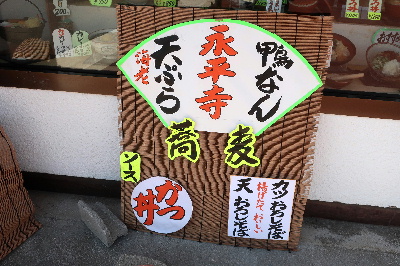 鴨なん
永平寺
海老
天ぷら
蕎麦
ソース
かつ丼
カツおろしそば
揚げたておいしい
天おろしそば